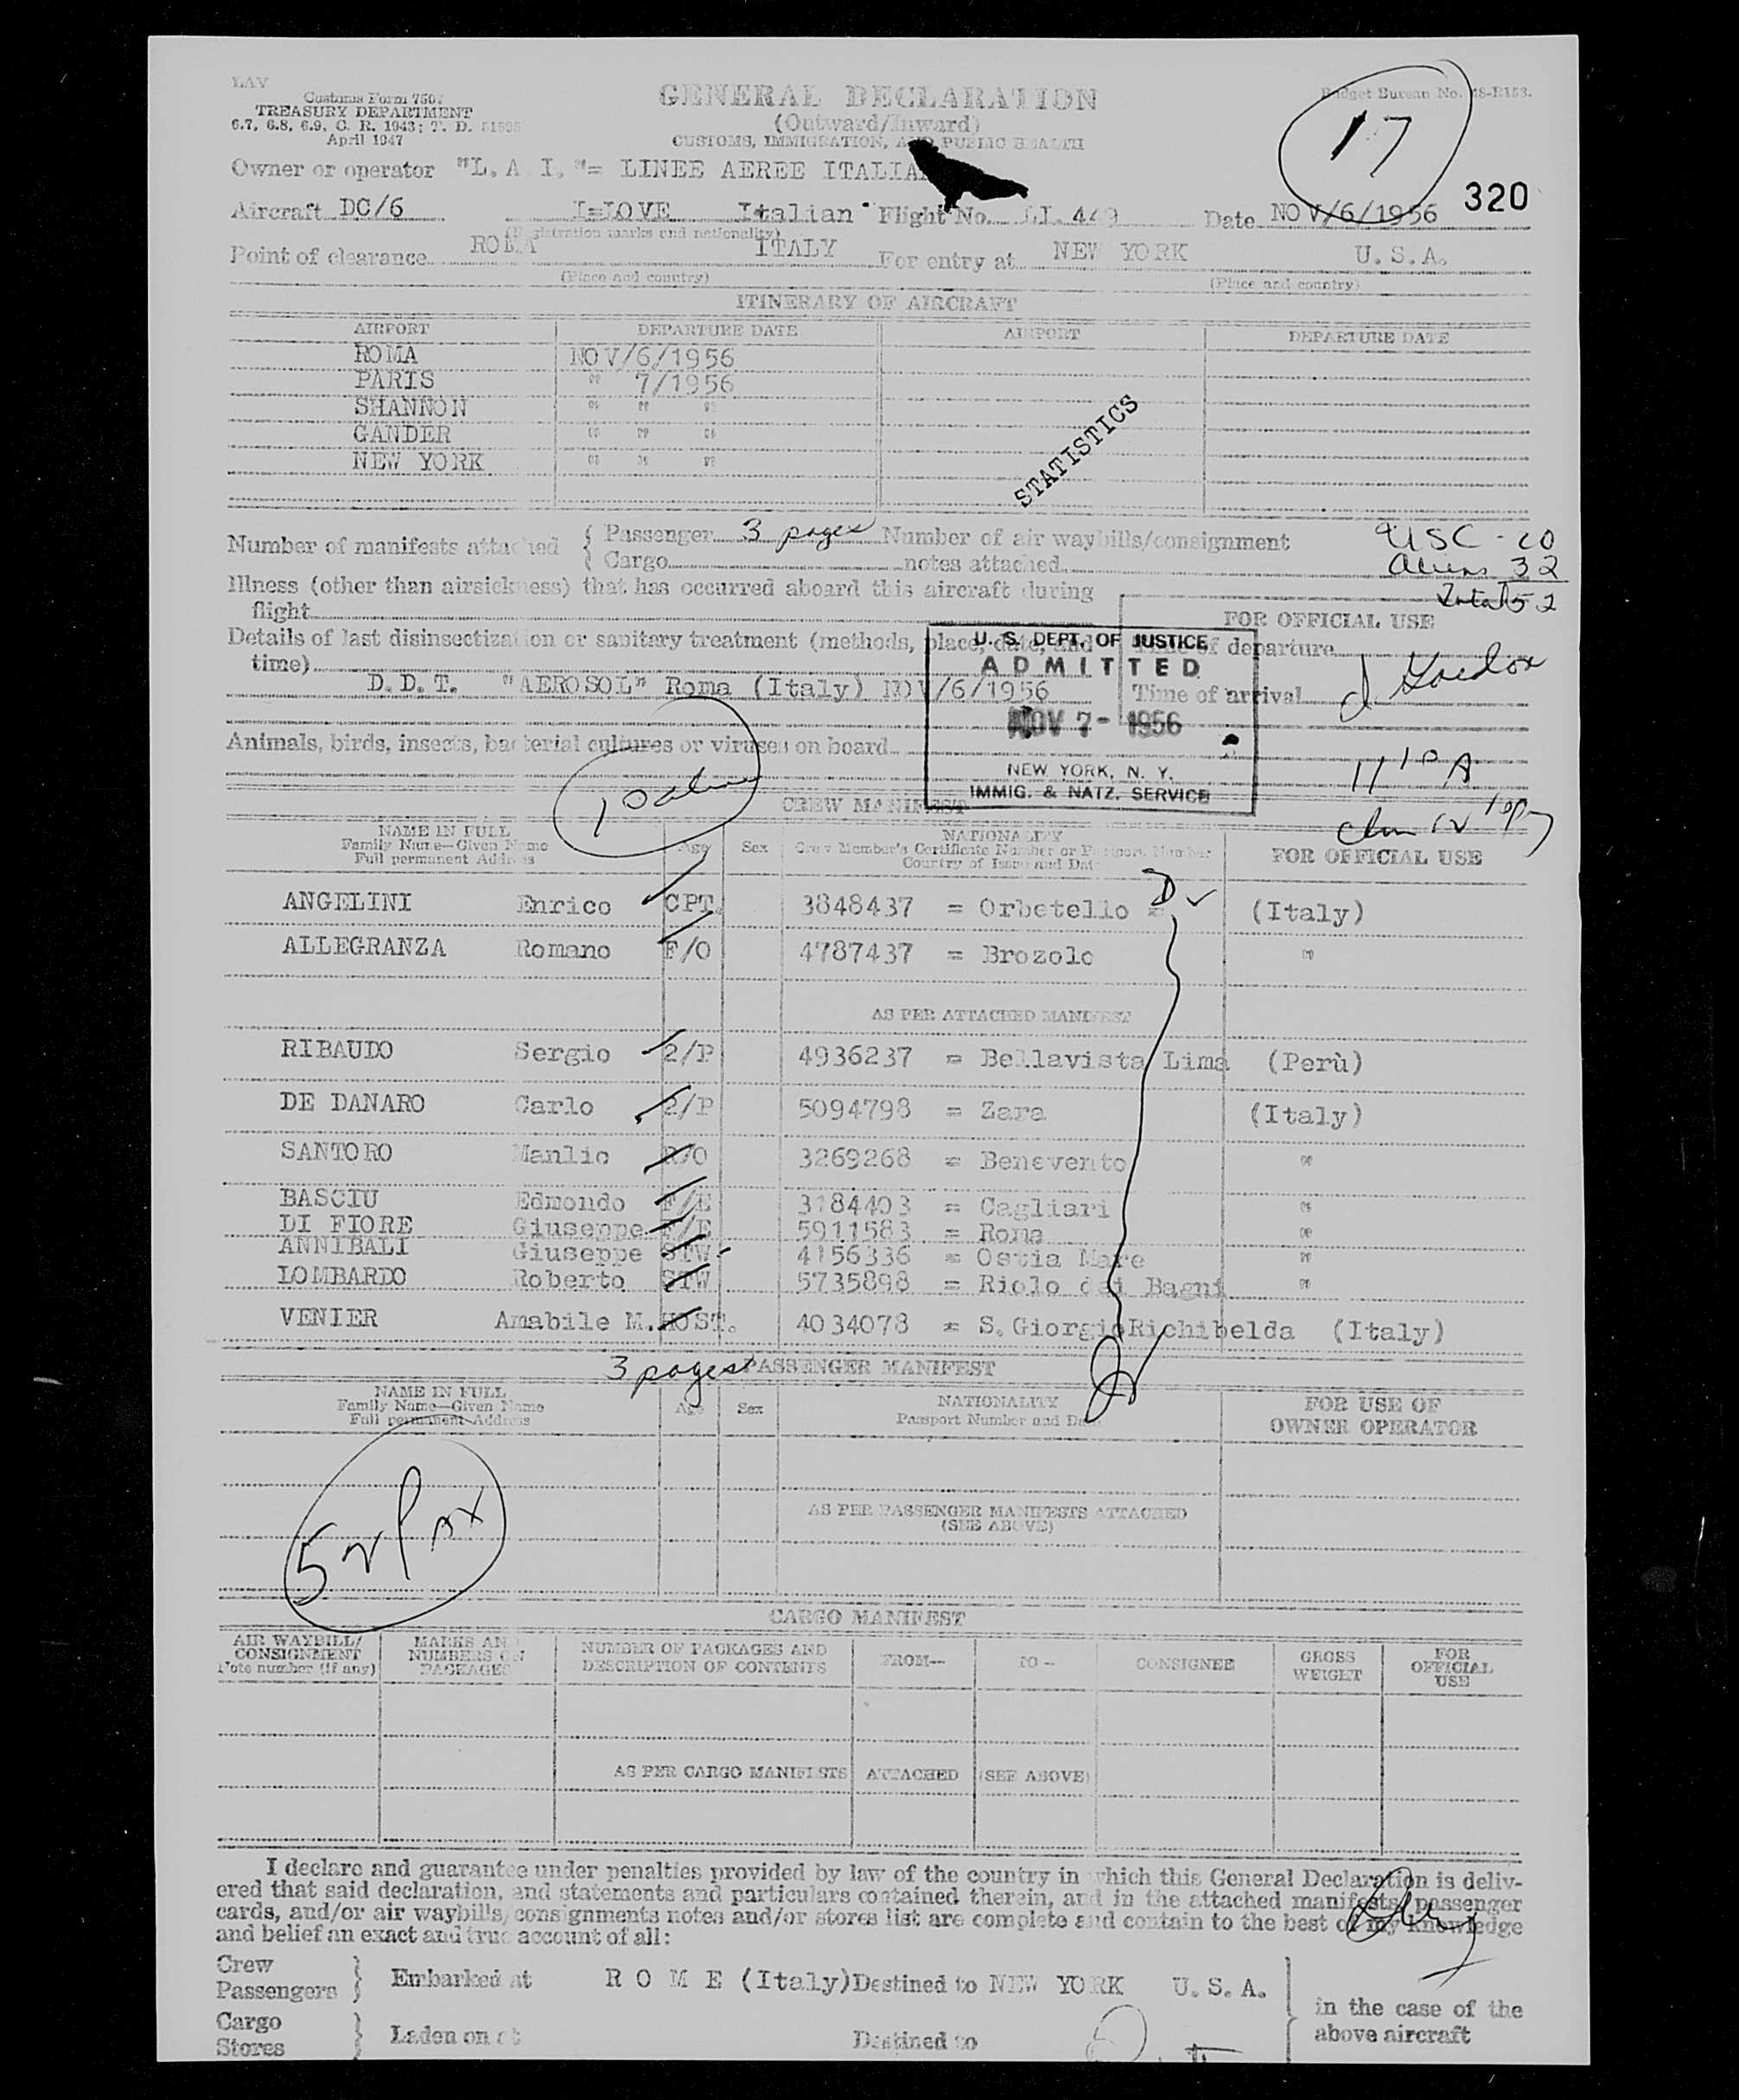 LAV
Customs Form 7507
TREASURY DEPARTMENT
6.7, 6.8, 6.9, C. R. 1943; T. D.
April 1947
GENERAL DECLARATION
(Outward/Inward)
CUSTOMS, IMMIGRATION, AND PUBLIC HEALTH
Budget Bureau No. 48-R153.
17
320
Owner or operator "L. A. I. "= LINEE AEREE ITALIA
Aircraft DC/6 I=LOVE Italian Flight No. LI. 449 Date NOV/6/1956
(Registration marks and nationality)
Point of clearance ROMA ITALY For entry at NEW YORK U. S. A.
(Place and country) (Place and country)
ITINERARY OF AIRCRAFT
AIRPORT DEPARTURE DATE AIRPORT DEPARTURE DATE
ROMA NOV/6/1956
PARIS " 7/1956
SHANNON " " "
GANDER " " "
NEW YORK " " "
STATISTICS
Number of manifests attached { Passenger 3 pages Number of air waybills/consignment
{ Cargo notes attached
USC - 20
Aliens 32
Total 52
Illness (other than airsickness) that has occurred aboard this aircraft during
flight
FOR OFFICIAL USE
Details of last disinsectization or sanitary treatment (methods, place, date, and
time)
Time of departure
D. D. T. "AEROSOL" Roma (Italy) NOV/6/1956
Time of arrival
U. S. DEPT. OF JUSTICE
ADMITTED
NOV 7 - 1956
NEW YORK, N. Y.
IMMIG. & NATZ. SERVICE
Animals, birds, insects, bacterial cultures or viruses on board
11 10 A
10
CREW MANIFEST
NAME IN FULL
Family Name—Given Name
Full permanent Address
Age Sex
NATIONALITY
Crew Member's Certificate Number or Passport Number
Country of Issue and Date
FOR OFFICIAL USE
ANGELINI Enrico CPT. 3848437 = Orbetello = (Italy)
ALLEGRANZA Romano F/O 4787437 = Brozolo "
AS PER ATTACHED MANIFEST
RIBAUDO Sergio 2/P 4936237 = Bellavista Lima (Perù)
DE DANARO Carlo 2/P 5094798 = Zara (Italy)
SANTORO Manlio R/O 3269268 = Benevento "
BASCIU Edmondo F/E 3184403 = Cagliari "
DI FIORE Giuseppe F/E 5911583 = Roma "
ANNIBALI Giuseppe STW. 4156336 = Ostia Mare "
LOMBARDO Roberto STW 5735898 = Riolo dei Bagni "
VENIER Amabile M. HOST. 4034078 = S. GiorgioRichibelda (Italy)
3 pages PASSENGER MANIFEST
NAME IN FULL
Family Name—Given Name
Full permanent Address
Age Sex
NATIONALITY
Passport Number and Date
FOR USE OF
OWNER OPERATOR
52 Pax
AS PER PASSENGER MANIFESTS ATTACHED
(SEE ABOVE)
CARGO MANIFEST
AIR WAYBILL/
CONSIGNMENT
Note number (if any)
MARKS AND
NUMBERS ON
PACKAGES
NUMBER OF PACKAGES AND
DESCRIPTION OF CONTENTS
FROM—
TO—
CONSIGNEE
GROSS
WEIGHT
FOR
OFFICIAL
USE
AS PER CARGO MANIFESTS ATTACHED (SEE ABOVE)
I declare and guarantee under penalties provided by law of the country in which this General Declaration is deliv-
ered that said declaration, and statements and particulars contained therein, and in the attached manifests, passenger
cards, and/or air waybills/consignments notes and/or stores list are complete and contain to the best of my knowledge
and belief an exact and true account of all:
Crew
Passengers } Embarked at R O M E (Italy) Destined to NEW YORK U. S. A.
Cargo
Stores } Laden on at Destined to
in the case of the
above aircraft